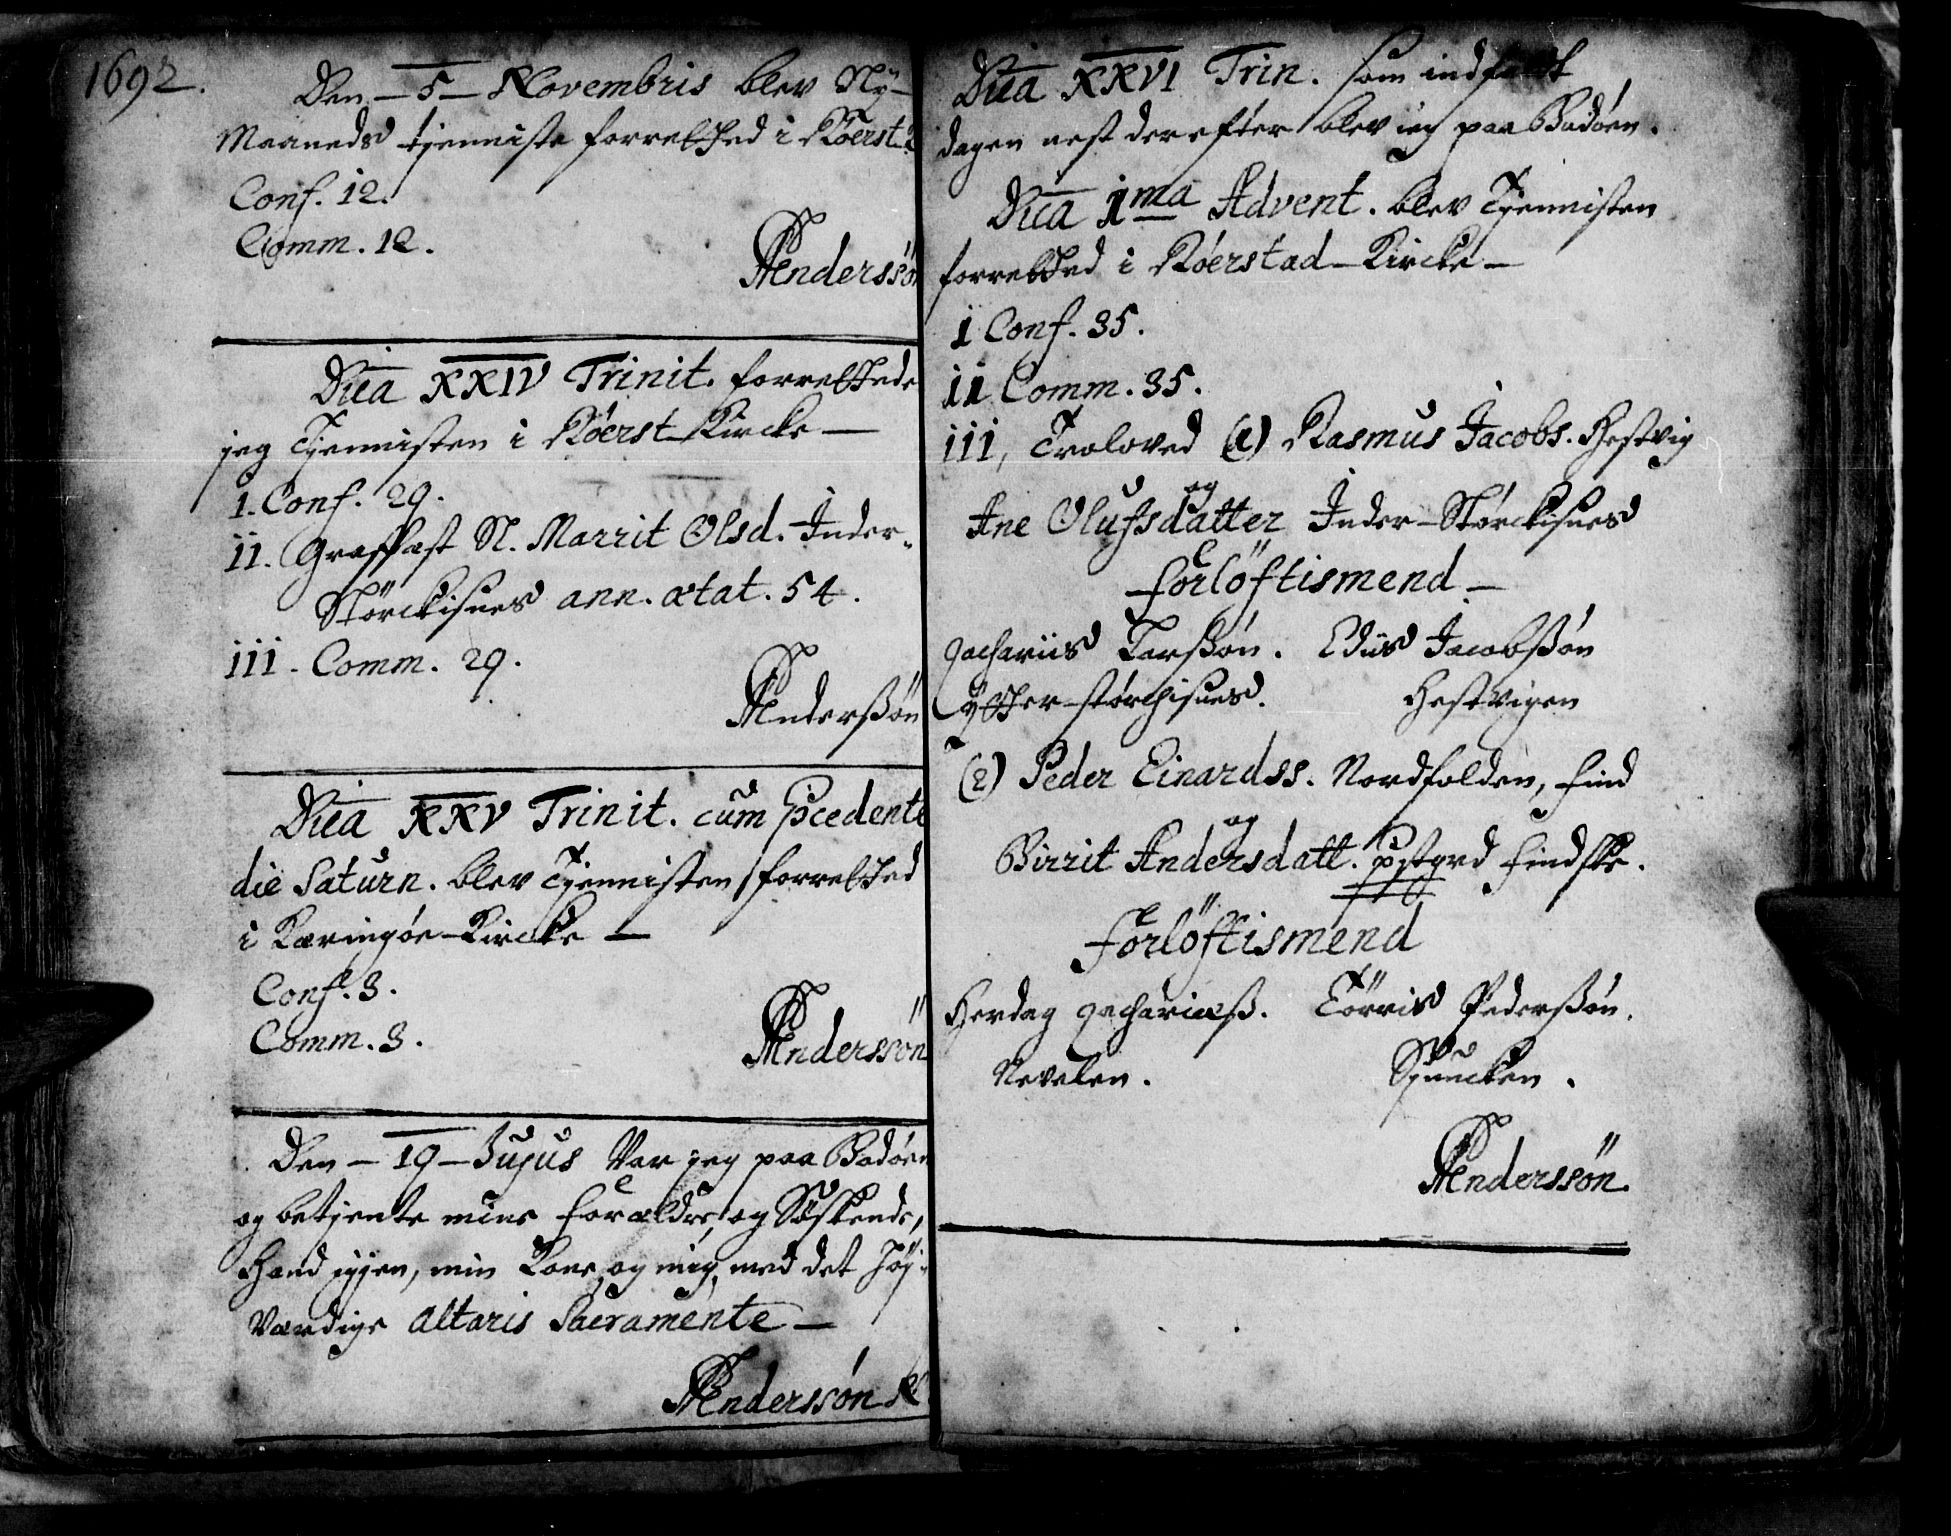 1692.
Den – 5 – Novembris blev Ny-
Maaneds tjenniste forretted i Røerst
Conf. 12.
Comm. 12.
Anderssön
Dica XXIV Trinit. forrettede
jeg Tjennisten i Røerst Kircke –
1. Conf. 29.
11. Graffast S. Marrit Olsd. Inder-
Størckisnes ann. ætat. 54.
111. Comm. 29.
Anderßön
Dica XXV Trinit. cum præcedente
die Saturn. blev Tjennisten forretted
i Kæringøe-Kircke –
Conf. 3.
Comm. 3.
Anderssön
Den – 19 – Hujus Var jeg paa Bodøen
og betjente mine Forældre, og Søskende,
Hand igjen, min Kone og mig, med det høj-
værdige Altaris Sacramente –
Anderssön
Dica XXVI Trin. som indfallt
dagen nest derefter blev jeg paa Bodøen.
Dica 1ma Advent. blev Tjennisten
forretted i Røerstad-Kircke –
1 Conf. 35.
11 Comm. 35.
111, Troloved (1) Rasmus Jacobs. Hestvig
og
Ane Olufsdatter Inder-Størckisnes
Forlöftismend –
Zachariis Larßøn. Ediis Jacobßøn
ytter-størchisnes. Hestvigen
(2) Peder Einardss. Nordfolden, find
og
Birrit Andersdatt. findske.
Forlöftismend
Herdag Zachariæß. Törris Pederßøn.
Nevelen. Sjuncken.
Anderssön